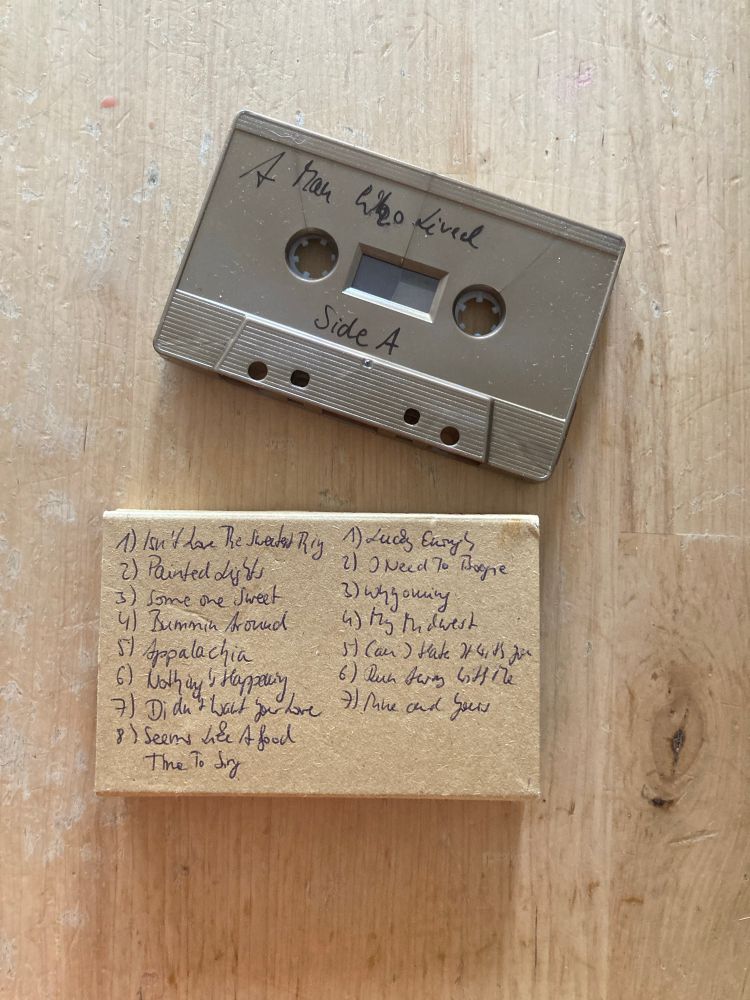 A Man Who Lived
Side A
1) Isn't Love The Sweetest Thing
2) Painted Lights
3) Some one Sweet
4) Bummin Around
5) Appalachia
6) Nothing's Happening
7) Didn't Want Your Love
8) Seems Like A good
Time To Sing
1) Lucky Enough
2) I Need To Boogie
3) Whyoming
4) My Midwest
5) Can I Make It With You
6) Run Away With Me
7) Mine and Yours